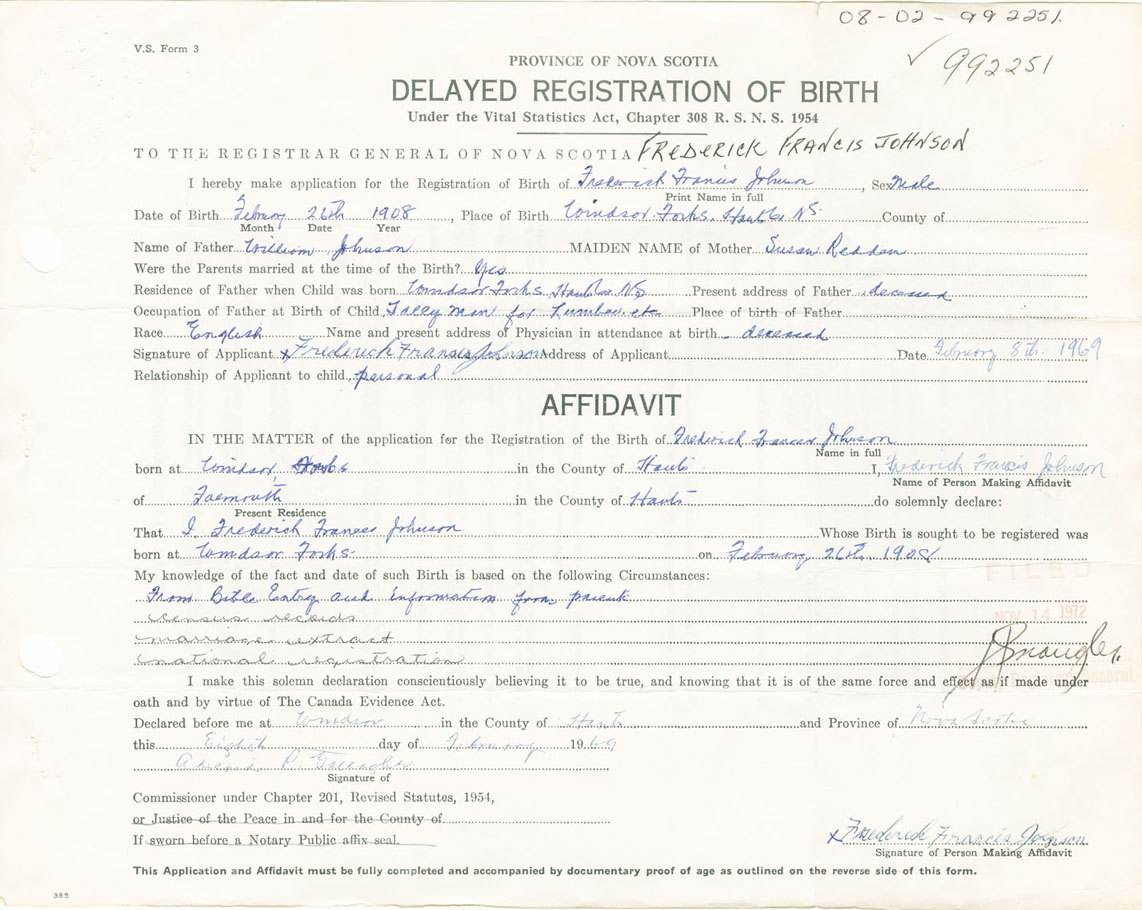 08-02-992251.
V.S. Form 3
✓ 992251
PROVINCE OF NOVA SCOTIA
DELAYED REGISTRATION OF BIRTH
Under the Vital Statistics Act, Chapter 308 R. S. N. S. 1954
TO THE REGISTRAR GENERAL OF NOVA SCOTIA FREDERICK FRANCIS JOHNSON
I hereby make application for the Registration of Birth of Frederick Francis Johnson, Sex Male
Print Name in full
Date of Birth February 26th 1908, Place of Birth Windsor Forks. Hants Co NS. County of
Month Date Year
Name of Father William Johnson MAIDEN NAME of Mother Susan Redden
Were the Parents married at the time of the Birth? Yes
Residence of Father when Child was born Windsor Forks Hants Co NS Present address of Father deceased
Occupation of Father at Birth of Child Tally Man for Lumber. etc Place of birth of Father
Race English Name and present address of Physician in attendance at birth deceased
Signature of Applicant x Frederick Francis Johnson Address of Applicant Date February 8th. 1969
Relationship of Applicant to child personal
AFFIDAVIT
IN THE MATTER of the application for the Registration of the Birth of Frederick Frances Johnson
Name in full
born at Windsor, Forks in the County of Hants I, Frederick Francis Johnson
Name of Person Making Affidavit
of Falmouth in the County of Hants do solemnly declare:
Present Residence
That I Frederick Frances Johnson Whose Birth is sought to be registered was
born at Windsor Forks on February 26th. 1908
My knowledge of the fact and date of such Birth is based on the following Circumstances:
FILED
From Bible Entry and information from parents
census records
NOV 14 1972
marriage extract
national registration
I make this solemn declaration conscientiously believing it to be true, and knowing that it is of the same force and effect as if made under
General
oath and by virtue of The Canada Evidence Act.
Declared before me at Windsor in the County of Hants and Province of Nova Scotia
this Eighth day of February 1969
Signature of
Commissioner under Chapter 201, Revised Statutes, 1954,
or Justice of the Peace in and for the County of
If sworn before a Notary Public affix seal.
x Frederick Francis Johnson
Signature of Person Making Affidavit
This Application and Affidavit must be fully completed and accompanied by documentary proof of age as outlined on the reverse side of this form.
385